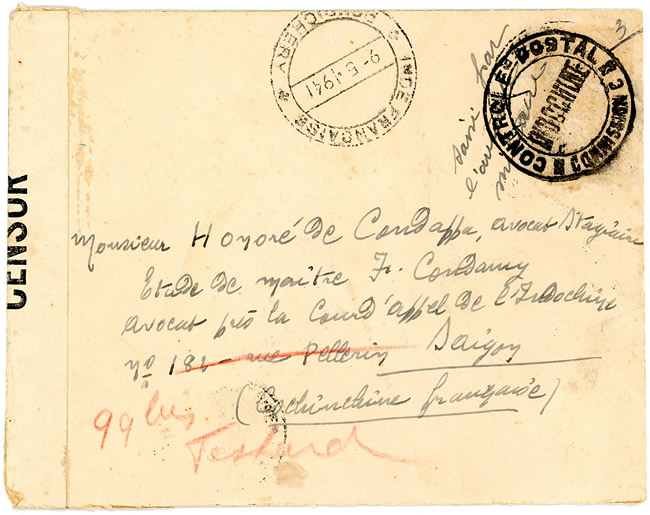 INDE FRANÇAISE
PONDICHERY
9-5-1941
CONTROLE POSTAL
COMMISSION E
INDOCHINE
saisi par
CENSOR
Monsieur Honoré de Condappa, avocat Stagiaire
Etude de maître Fr. Condamy
avocat près la Cour d'appel de l'Indochine
No 182 - rue Pellerin Saigon
(Cochinchine française)
99 bis.
Testard